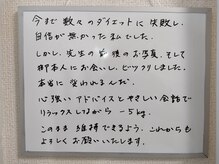 今まで数々のダイエットに失敗し、
自信が無かった私でした。
しかし、先生の産後のお写真、そして
御本人にお会いし、ビックリしました。
本当に変われるんだ。
心強いアドバイスとやさしい会話で
リラックスしながら −5kg。
このまま維持できるよう、これからも
よろしくお願いいたします。